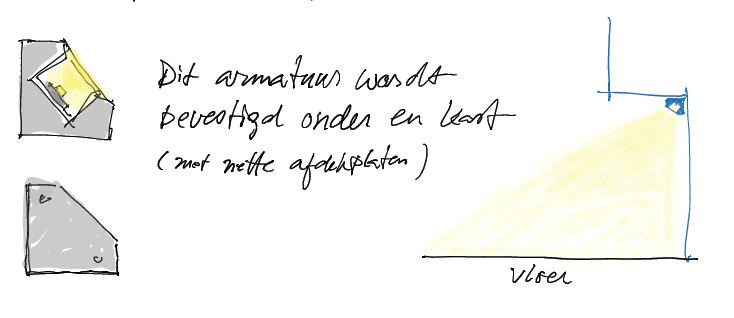 Dit armatuur wordt
bevestigd onder en kast
(met nette afdekplaten)
vloer